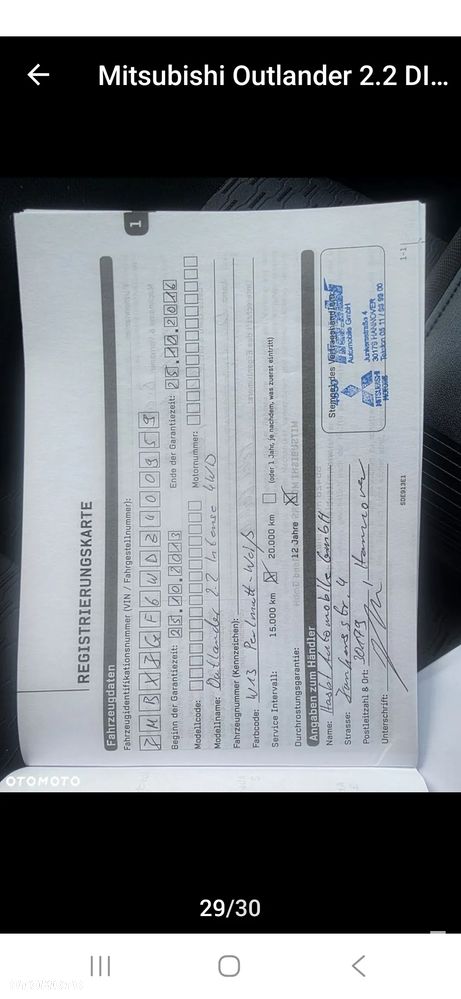 Mitsubishi Outlander 2.2 DI...
1
REGISTRIERUNGSKARTE
Fahrzeugdaten
Fahrzeugidentifikationsnummer (VIN / Fahrgestellnummer):
Beginn der Garantiezeit: 25.10.2013 Ende der Garantiezeit: 25.10.2016
Modellcode: Motornummer:
Modellname: Outlander 2.2 Intense 4WD
Fahrzeugnummer (Kennzeichen):
Farbcode: W13 Perlmutt-Weiß
Service Intervall: 15.000 km 20.000 km (oder 1 Jahr, je nachdem, was zuerst eintritt)
Durchrostungsgarantie: 12 Jahre
Angaben zum Händler
Name: Automobile GmbH
Strasse: 4
Postleitzahl & Ort: 30179 Hannover
Unterschrift:
Stempel des Vertragshändlers
Automobile GmbH
MITSUBISHI
MOTORS
Junkersstraße 4
30179 HANNOVER
Telefon 05 11 /
1-1
OTOMOTO
29/30